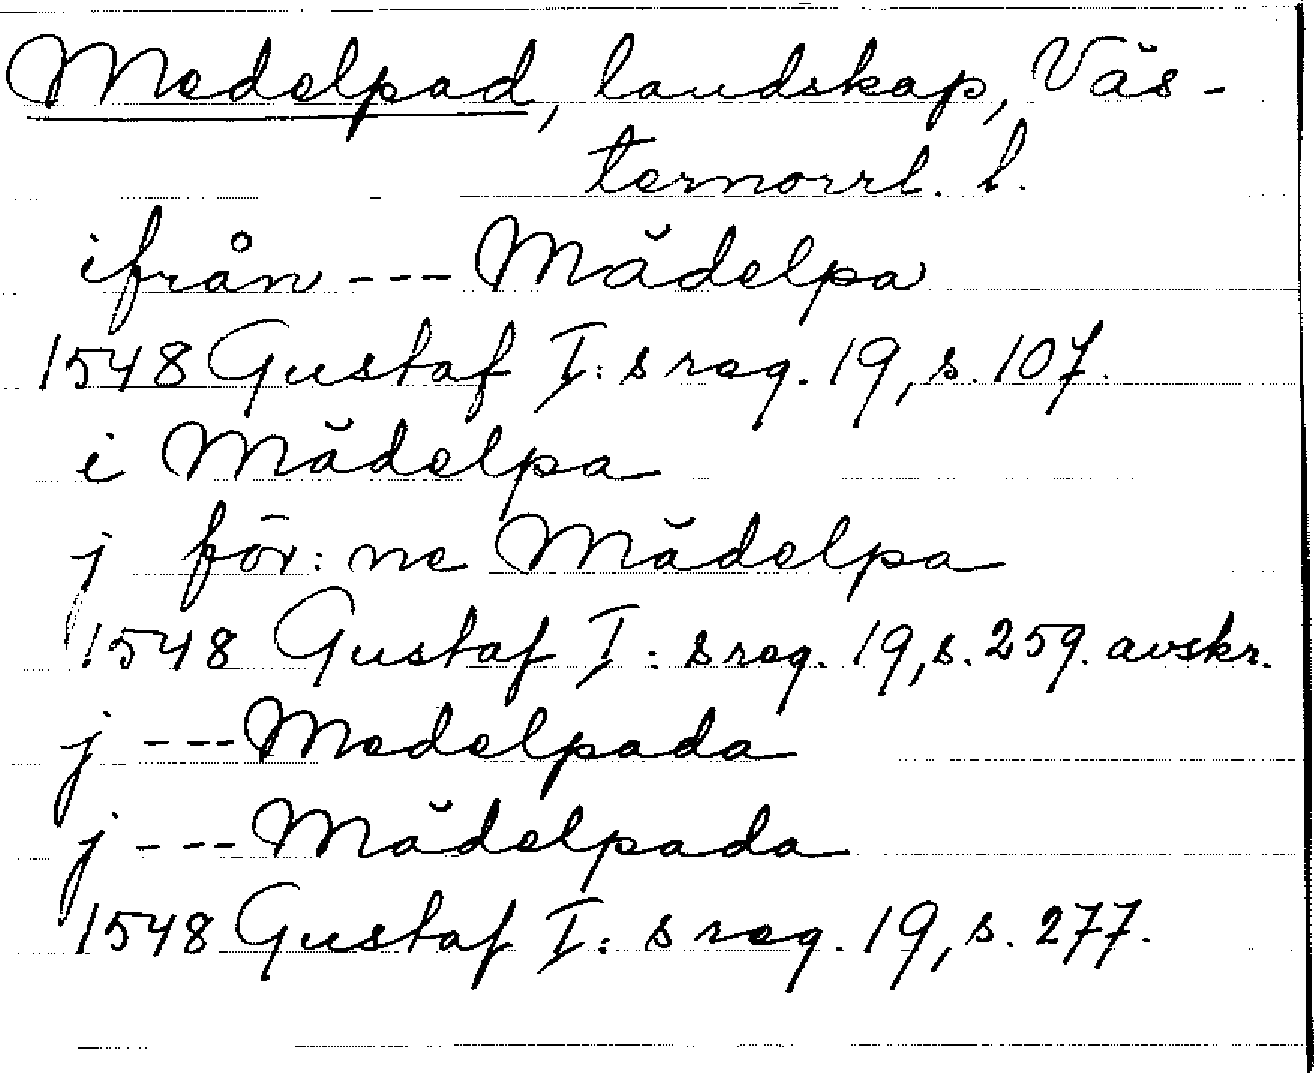 Medelpad, landskap, Väs-
ternorrl. l.
ifrån --- Mädelpa
1548 Gustaf I:s reg. 19, s. 107.
i Mädelpa
j för:ne Mädelpa
1548 Gustaf I:s reg. 19, s. 259. avskr.
j --- Medelpada
j --- Mädelpada
1548 Gustaf I:s reg. 19, s. 277.